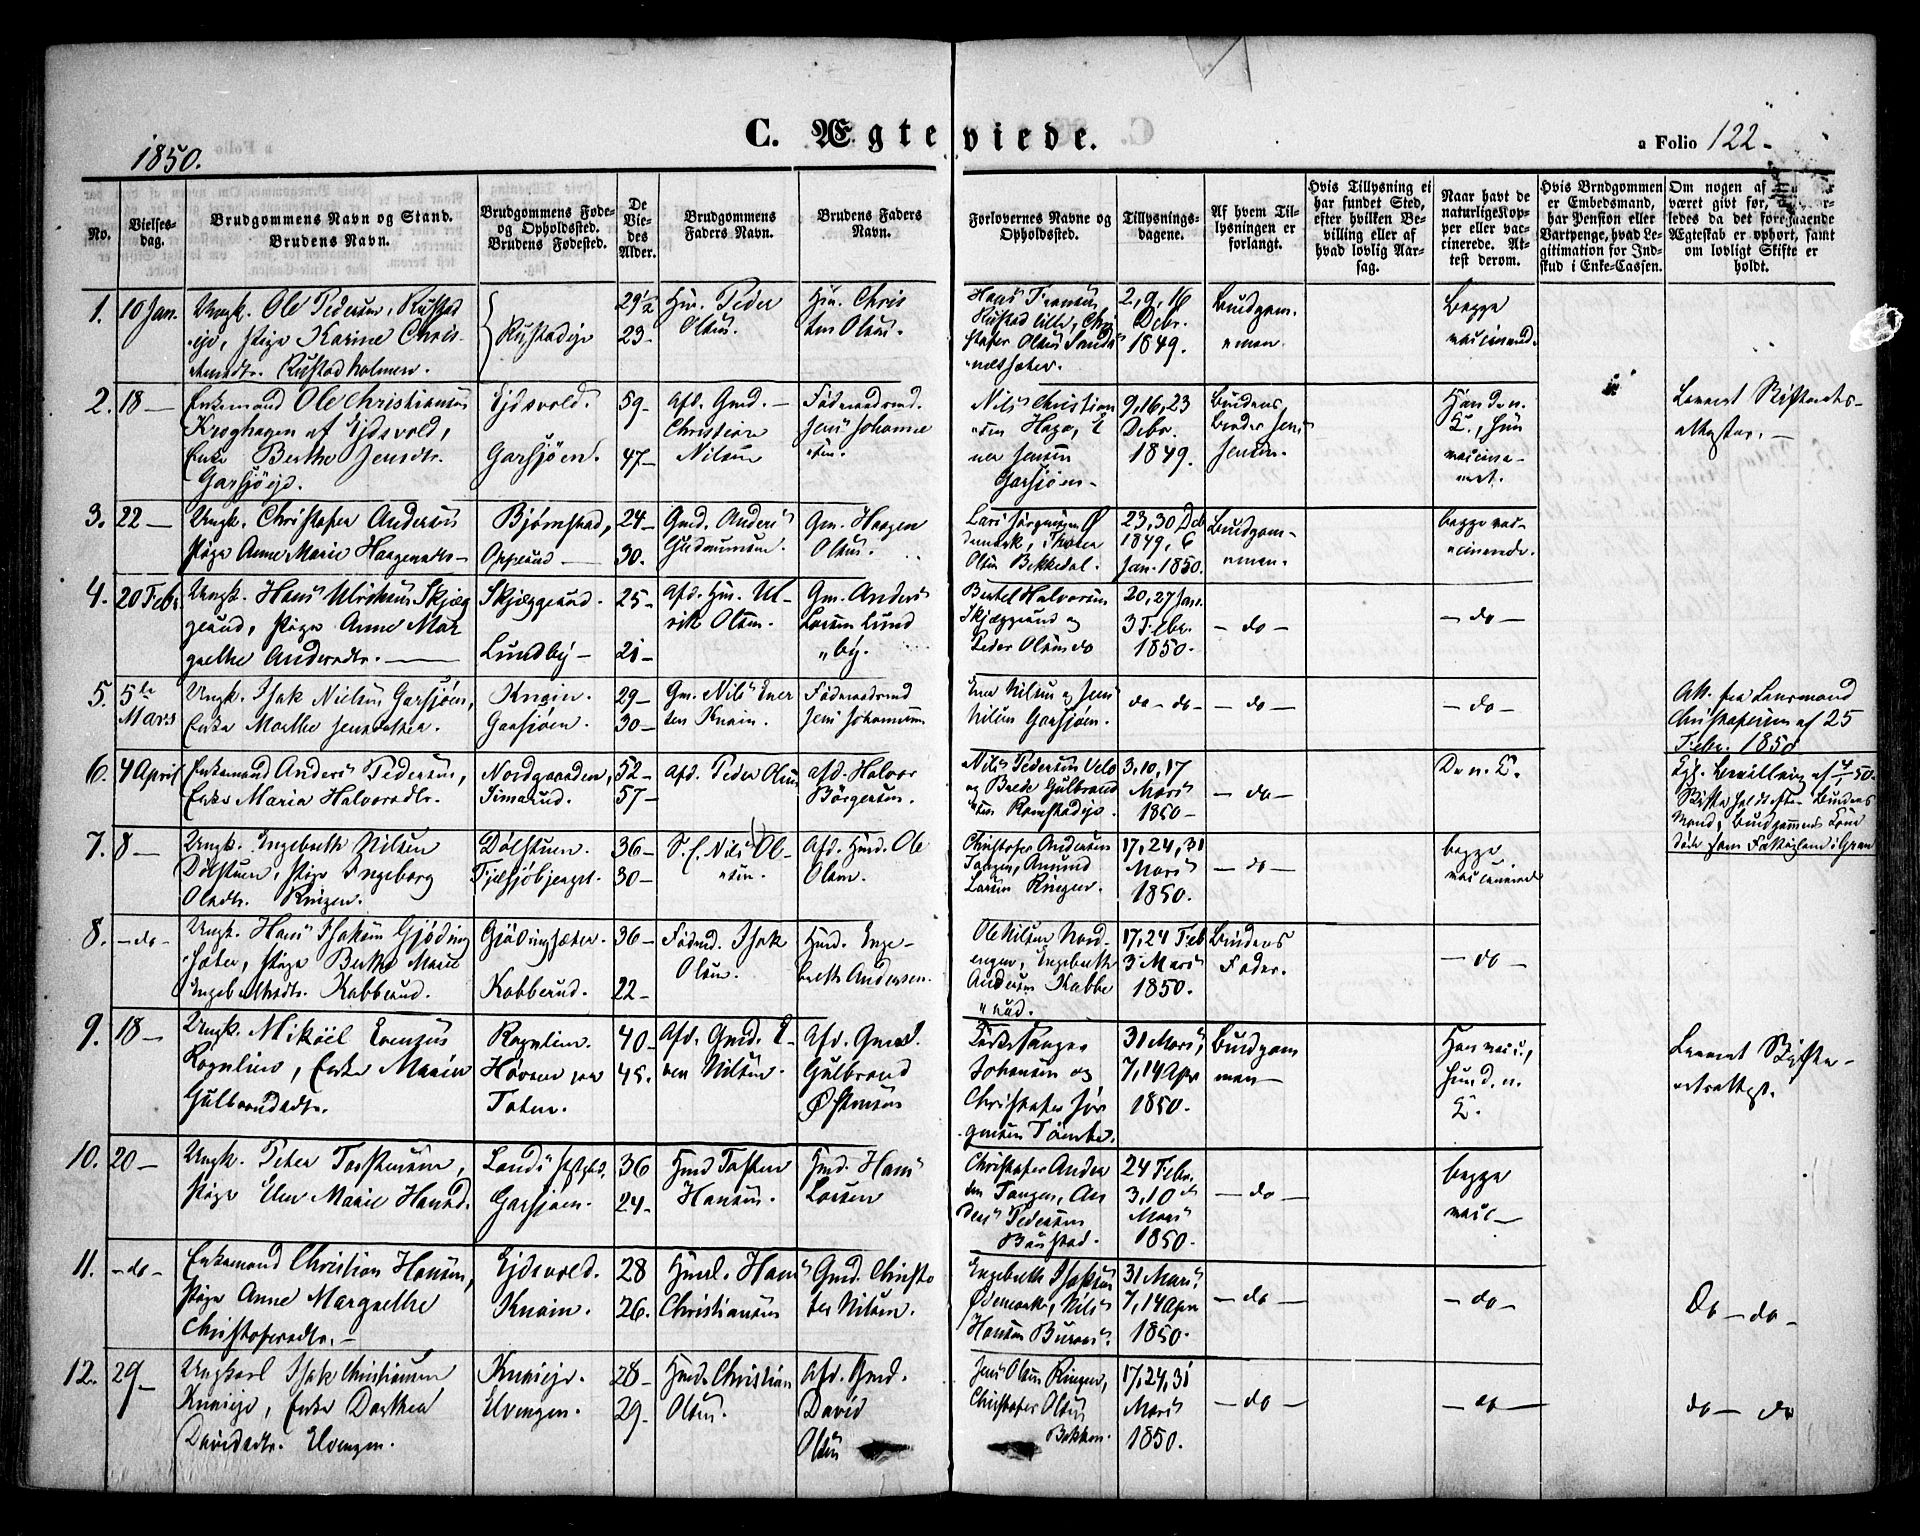 C. Ægteviede.
1850.
a Folio 122
No.
Vielses-
dag.
Brudgommens Navn og Stand.
Brudens Navn.
Brudgommens Føde-
og Opholdssted.
Brudens Fødested.
De
Vie-
des
Alder.
Brudgommens
Faders Navn.
Brudens Faders
Navn.
Forlovernes Navne og
Opholdssted.
Tillysnings-
dagene.
Af hvem Til-
lysningen er
forlangt.
Hvis Tillysning ei
har fundet Sted,
efter hvilken Be-
villing eller af
hvad lovlig Aar-
sag.
Naar havt de
naturlige Kop-
per eller vac-
cinerede. At-
test derom.
Hvis Brudgommen
er Embedsmand,
har Pension eller
Vartpenge, hvad Le-
gitimation for Ind-
skud i Enke-Cassen.
Om nogen af
været gift før,
ledes da det foregaaende
Ægteskab er ophørt, samt
om lovligt Skifte er
holdt.
1. 10 Jan. Ungk. Ole Pedersen, Rustad
eje, Pige Karine Chris-
tensdtr. Rustadholmen.
Rustadeje
29½
23-
Hm. Peder
Olsen.
Hm. Chris
ten Olsen.
Hans Fransen
Rustad lille, Chri
stofer Olsen Sand
næssæter.
2, 9, 16
Decbr.
1849.
Brudgom-
men
Begge
vaccinered.
2. 18 - Enkemand Ole Christiansen
Kroghagen af Ejdsvold,
Enke Berthe Jensdtr.
Garsjøeje.
Ejdsvold.
Garsjøen.
59-
47-
Afd. Gmd.
Christian
Nilsen
Føderaadsmd.
Jens Johanne
sen.
Nils Christian
sen Haga, E
ner Jensen
Garsjøen-
9, 16, 23
Decbr.
1849.
Brudens
Broder Jens
Jensen.
Han d. n.
K., hun
vaccine-
ret.
Leveret Skifterets-
attester. -
3. 22 - Ungk. Christofer Andersen
Pige Anne Marie Haagensdtr-
Bjørnstad,
Opperud -
24-
30.
Gmd. Anders
Gudmunsen.
Gm. Haagen
Olsen.
Lars Jørgensen Ø
demark, Thorer
Olsen Bekkedal.
23, 30 Deb
1849, 6
Jan. 1850.
Brudgom-
men.
begge vac-
cinerede.
4. 20 Feb. Ungk. Hans Ulriksen Skjæg
gerud, Pige Anne Mar
grethe Andersdtr. -
Skjæggerud
Lundby -
25-
21-
Afd. Hm. Ul-
rik Olsen.
Gm. Anders
Larsen Lund
by.
Bertel Halvorsen
Skjæggerud og
Peder Olsen do
20, 27 Jan.
3 Febr.
1850.
- do -
- do -
5. 5te
Mars
Ungk. Isak Nielsen Garsjøen,
Enke Marthe Jensdatter.
Knain.
Garsjøen.
29-
30-
Gm. Nils Ener
sen Knain.
Føderaadsmd
Jens Johannesen
Ener Nilsen og Jens
Nilsen Garsjøen.
do - do -
- do -
- do -
Att. fra Lensmand
Christofersen af 25
Febr. 1850
6. 4 April Enkemand Anders Pedersen,
Enke Maria Halvorsdtr.
Nordgaarden,
Simerud.
52-
57-
Afd. Peder Olsen
Afd. Halvor
Børgersen.
Nils Pedersen Velo
og Brede Gulbrand
sen Ramstadeje
3, 10, 17
Mars
1850-
- do -
De n. K.
Kgl. Bevilling af
Skifte holdt efter Brudens
Mand, Brudgommens Kone
døde som Fattiglem i Gran
7. 8 - Ungk. Engebreth Nilsen
Dølstuen, Pige Ingeborg
Olsdtr. Ringen.
Dølstuen.
Fjeldsjøbjerget.
36-
30-
S. f. Nils Ol-
sen.
Afd. Husmd. Ole
Olsen.
Christofer Andersen
Tangen, Amund
Larsen Ringen.
17, 24, 31
Mars
1850.
- do -
begge
vaccinerede
8. - do - Ungk. Hans Isaksen Gjøding
sæter, Pige Berthe Marie
Engebrethsdtr. Kabberud.
Gjødingsæter.
Kabberud.
36-
22-
Føderd. Isak
Olsen.
Husmd. Enge-
breth Andersen.
Ole Nilsen Nord-
engen, Engebreth
Andersen Kabbe
rud.
17, 24 Feb
3 Mars
1850.
Brudens
Fader.
- do -
9. 18 - Ungk. Mikael Evensen
Rognlien, Enke Maria
Gulbrandsdtr.
Rognlien.
Høvern paa
Toten.
40-
45.
Afd. Gmd. E-
ven Nilsen.
Afd. Gmd.
Gulbrand
Østensen
Johansen og
Christofer Jør
gensen Tømte.
31 Mars,
7, 14 Apr
1850.
Brudgom
men-
Han vacc.,
hun d. n.
K.
Leveret Skifte-
retsattest.
10. 20 - Ungk. Peter Torstensen,
Pige Elen Marie Hansd.
Lands Prstgjd.
Garsjøen.
36
24-
Husmd Tosten
Hansen.
Husmd. Hans
Larsen
Christofer Ander
sen Tangen, An
ders Pedersen
Baustad.
24 Febr.
3, 10 de
Mars
1850.
- do -
begge
vacc -
11. - do - Enkemand Christian Hansen,
Pige Anne Margrethe
Christofersdtr. -
Ejdsvold.
Knain.
28
26.
Husmd. Hans
Christiansen
Gmd. Christo
fer Nilsen.
Engebreth Isaksen
Ødemark, Nils
Hansen Buraas.
31 Mars.
7, 14 Apr
1850.
- do -
- do -
Do - do -
12. 29 - Ungkarl Isak Christiansen
Knaieje, Enke Dorthea
Davidsdtr. Elvengen.
Knaieje.
Elvengen.
28-
29-
Husmd. Christian
Olsen.
Afd. Husmd.
David
Olsen
Jens Olsen Ringen,
Christofer Olsen
Bakken.
17, 24, 31
Mars
1850.
- do -
- do -
do - do